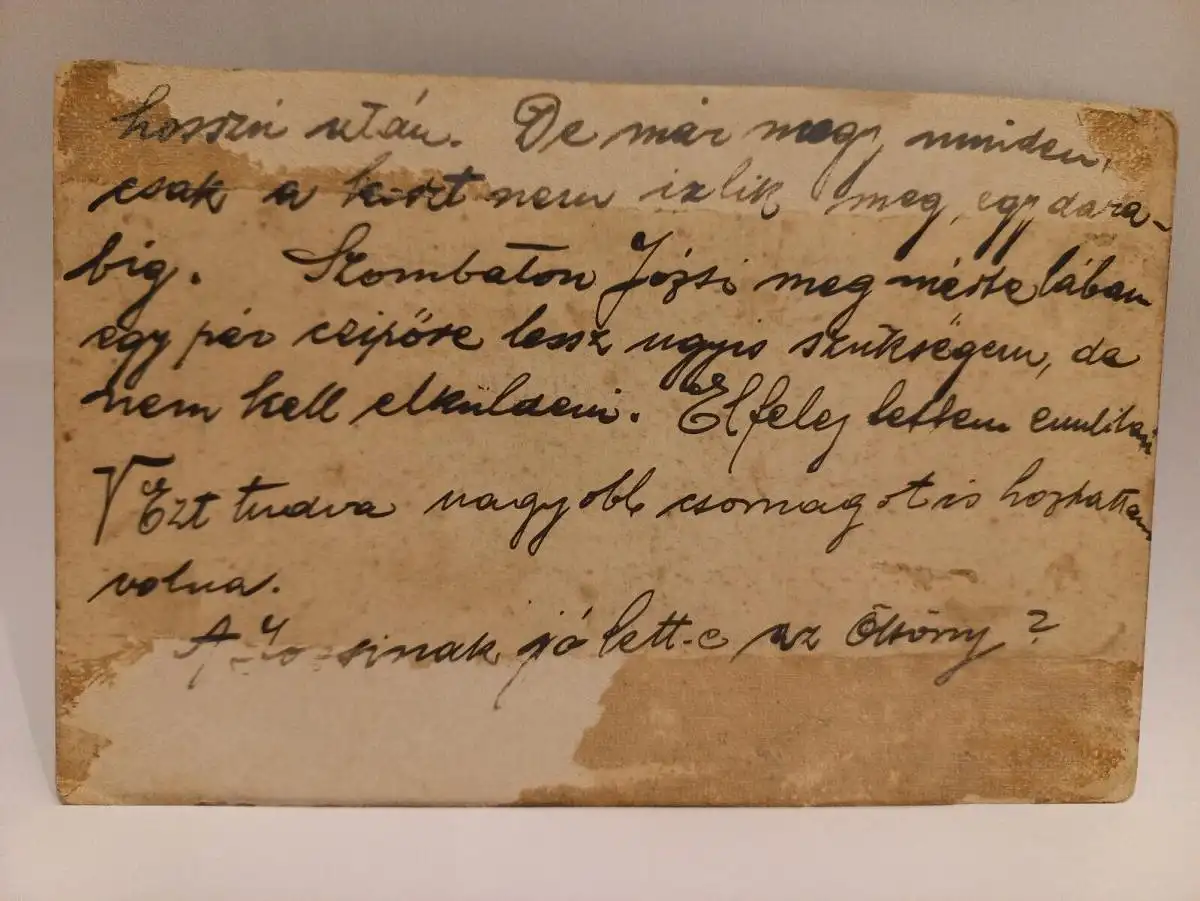 hosszú után. De már megy minden,
csak a nem izlik meg, egy dara-
big. Szombaton Józsi meg mérte lában
egy pár czipőre lessz ugyis szükségem, da
nem kell elküldeni. El felej tettem emlitani
√ Ezt tudva nagyobb csomagot is hozhattam
volna.
A Jo-sinak jó lett-e az Öltöny?